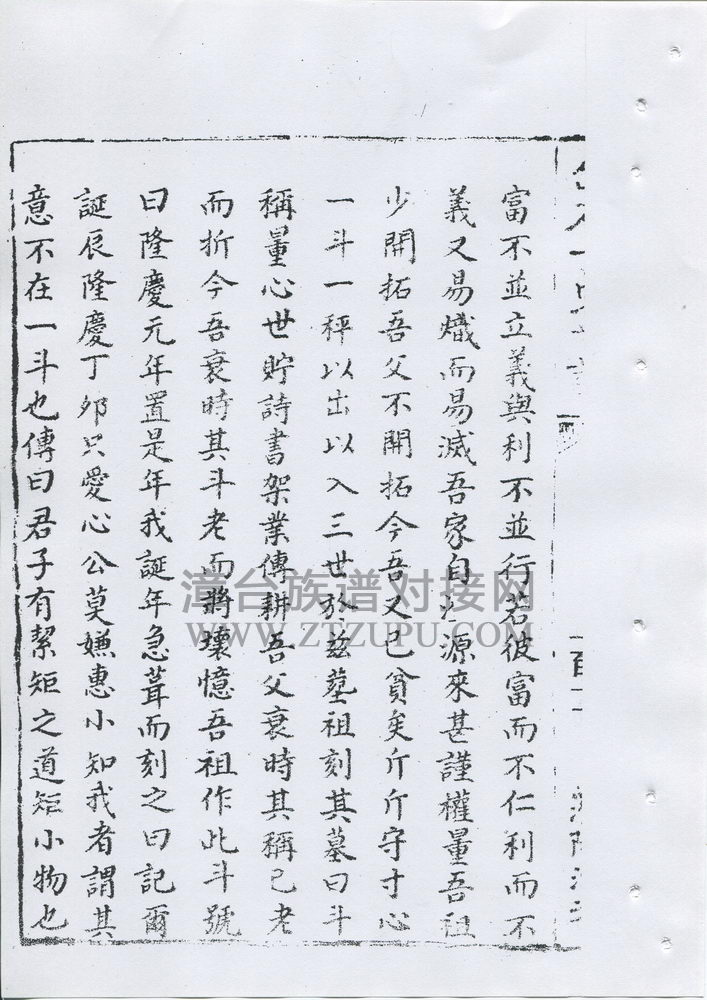 富不並立義與利不並行若彼富而不仁利而不
義又易熾而易滅吾家自江源來甚謹權量吾祖
少開拓吾父不開拓今吾又已貧矣斤斤守寸心
一斗一秤以出以入三世於茲墓祖刻其墓曰斗
稱量心世貯詩書架業傳耕吾父衰時其稱已老
而折今吾衰時其斗老而將壞憶吾祖作此斗號
曰隆慶元年置是年我誕年急葺而刻之曰記爾
誕辰隆慶丁夘只愛心公莫嫌惠小知我者謂其
意不在一斗也傳曰君子有絜矩之道矩小物也
漳台族谱对接网
WWW.ZTZUPU.COM